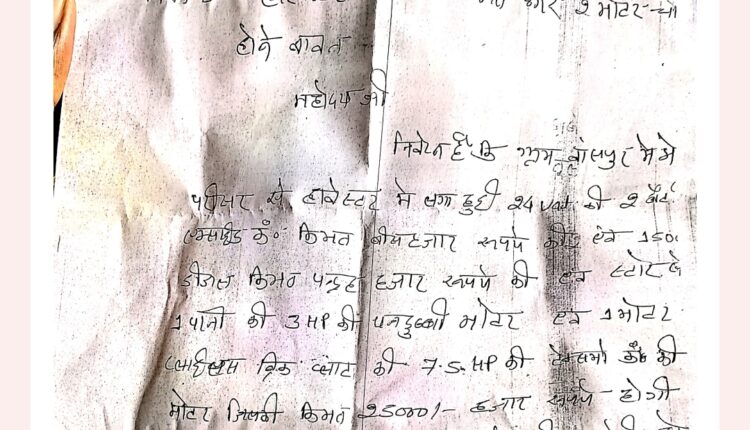 मोटर चो
होने बावत
महोदय जी
निवेदन है कि ग्राम दूलपुर में मे
परीसर से हार्वेस्टर में लगी हुयी 24 Volt की 2 बैट
एक्साईड कं० किमत बीस हजार रूपये की एवं 150
डीजल किमत पन्द्रह हजार रूपये की एवं स्टोर से
1 पानी की 3 HP की पनडुब्बी मोटर एवं 1 मोटर
ब्रिक प्लांट की 7.5 HP की कं० की
मोटर जिसकी किमत 25000/- हजार रूपये होगी